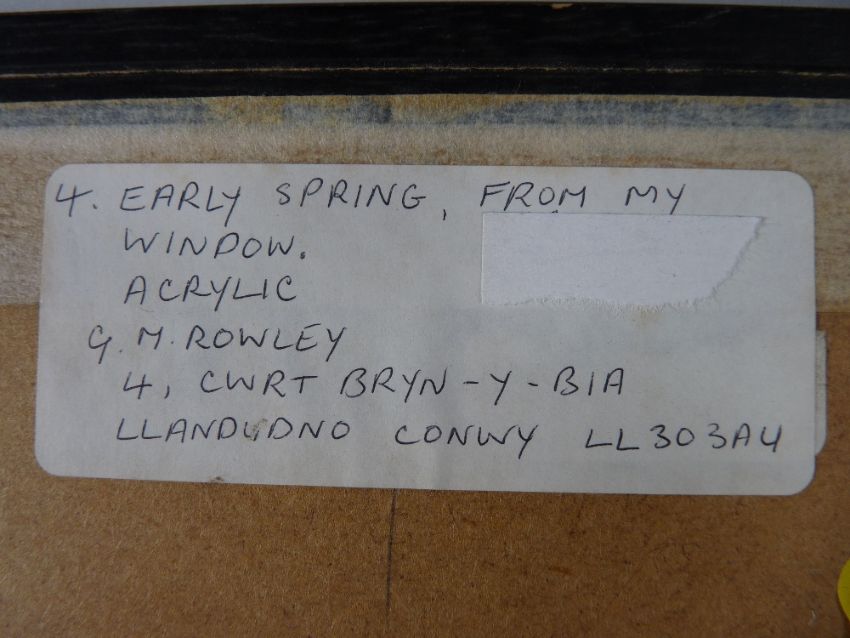 4. EARLY SPRING, FROM MY
WINDOW.
ACRYLIC
G. M. ROWLEY
4, CWRT BRYN-Y-BIA
LLANDUDNO CONWY LL303AY